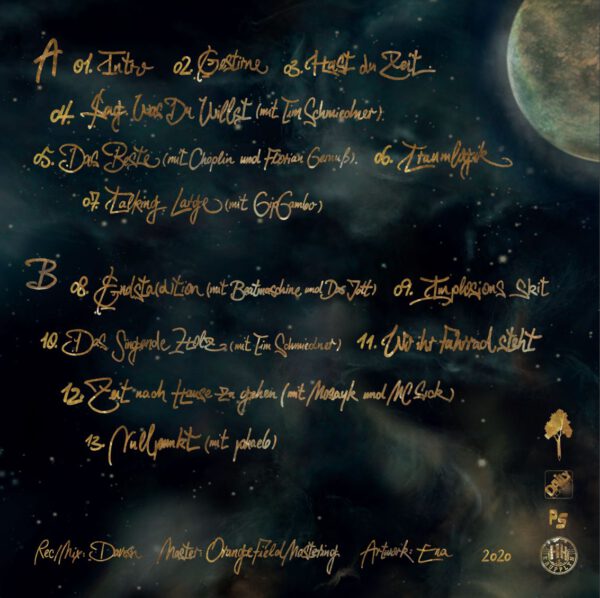 A 01. Intro 02. Gestirne 03. Hast du Zeit
04. Sag Was Du Willst (mit Tim Schmiedner)
05. Das Beste (mit Choplin und Florian Genuß) 06. Traumlogik
07. Talking Large (mit GipGambo)
B 08. Endsta(d)tion (mit Beatmaschine und Das Jott) 09. Implosions Skit
10. Das Singende Holz (mit Tim Schmiedner) 11. Wo ihr Fahrrad steht
12. Zeit nach Hause zu gehen (mit Mosayk und MC Srok)
13. Nullpunkt (mit phaeb)
PS
HHV
SUPPLY
Rec/Mix: Master: Orangefield Mastering Artwork: Ena 2020